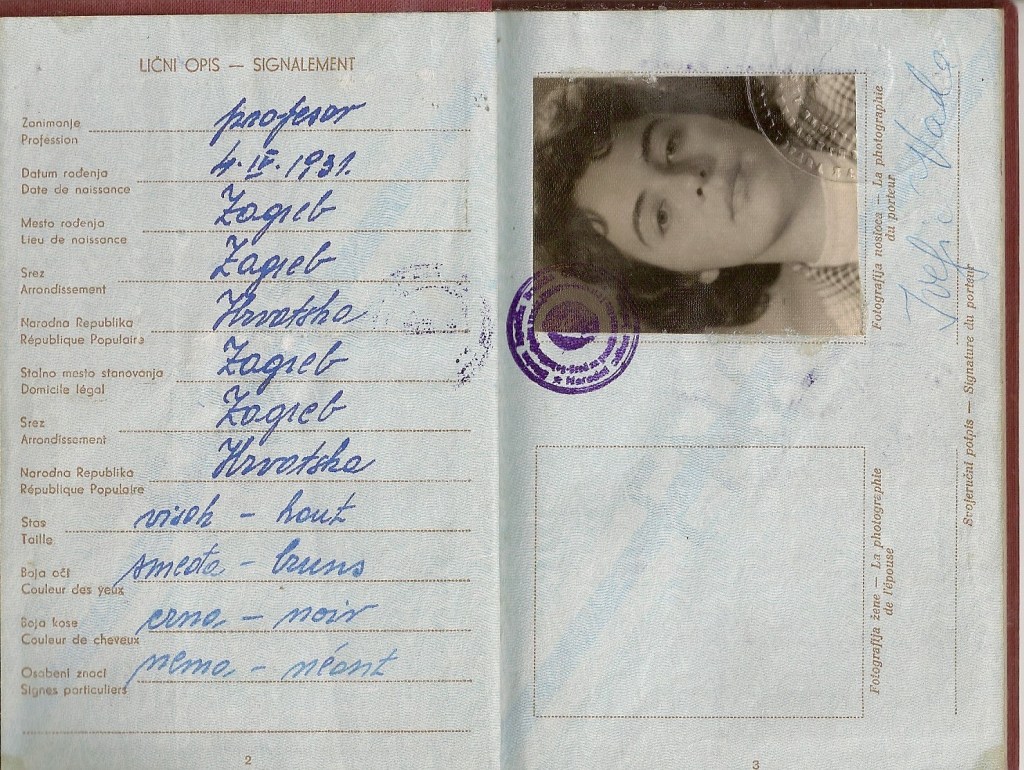 LIČNI OPIS — SIGNALEMENT
Zanimanje profesor
Profession
Datum rođenja 4. IV. 1931.
Date de naissance
Mesto rođenja Zagreb
Lieu de naissance
Srez Zagreb
Arrondissement
Narodna Republika Hrvatska
République Populaire
Stalno mesto stanovanja Zagreb
Domicile légal
Srez Zagreb
Arrondissement
Narodna Republika Hrvatska
République Populaire
Stas visok - haut
Taille
Boja oči smeđa - bruns
Couleur des yeux
Boja kose crna - noir
Couleur de cheveux
Osobeni znaci nema - néant
Signes particuliers
2
Fotografija nosioca — La photographie
du porteur
Svojeručni potpis — Signature du porteur
Fotografija žene — La photographie
de l'épouse
3